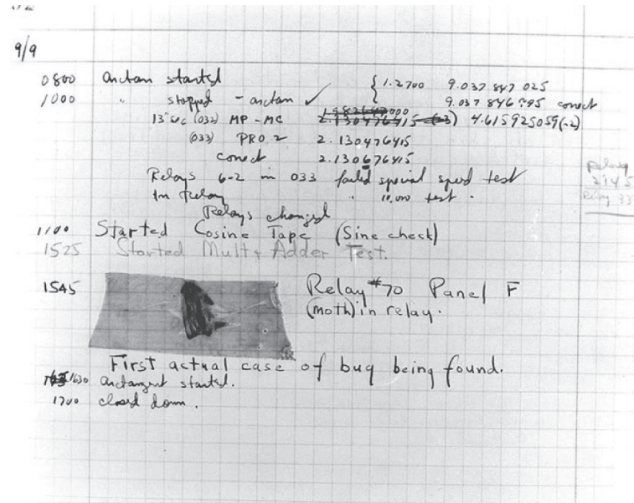 9/9
0800 arctan started { 1.2700 9.037 847 025
1000 " stopped - arctan ✓ 9.037 846 995 correct
13"uc (032) MP - MC 2.130476415 (-3) 4.615925059(-2)
(033) PRO 2 2.130476415
correct 2.130676415
Relays 6-2 in 033 failed special speed test
In Relay " 10,000 test .
Relays changed
1100 Started Cosine Tape (Sine check)
1525 Started Mult + Adder Test.
1545 Relay #70 Panel F
(moth) in relay.
First actual case of bug being found.
1630 arctangent started.
1700 closed down .
Relay
Relay 33